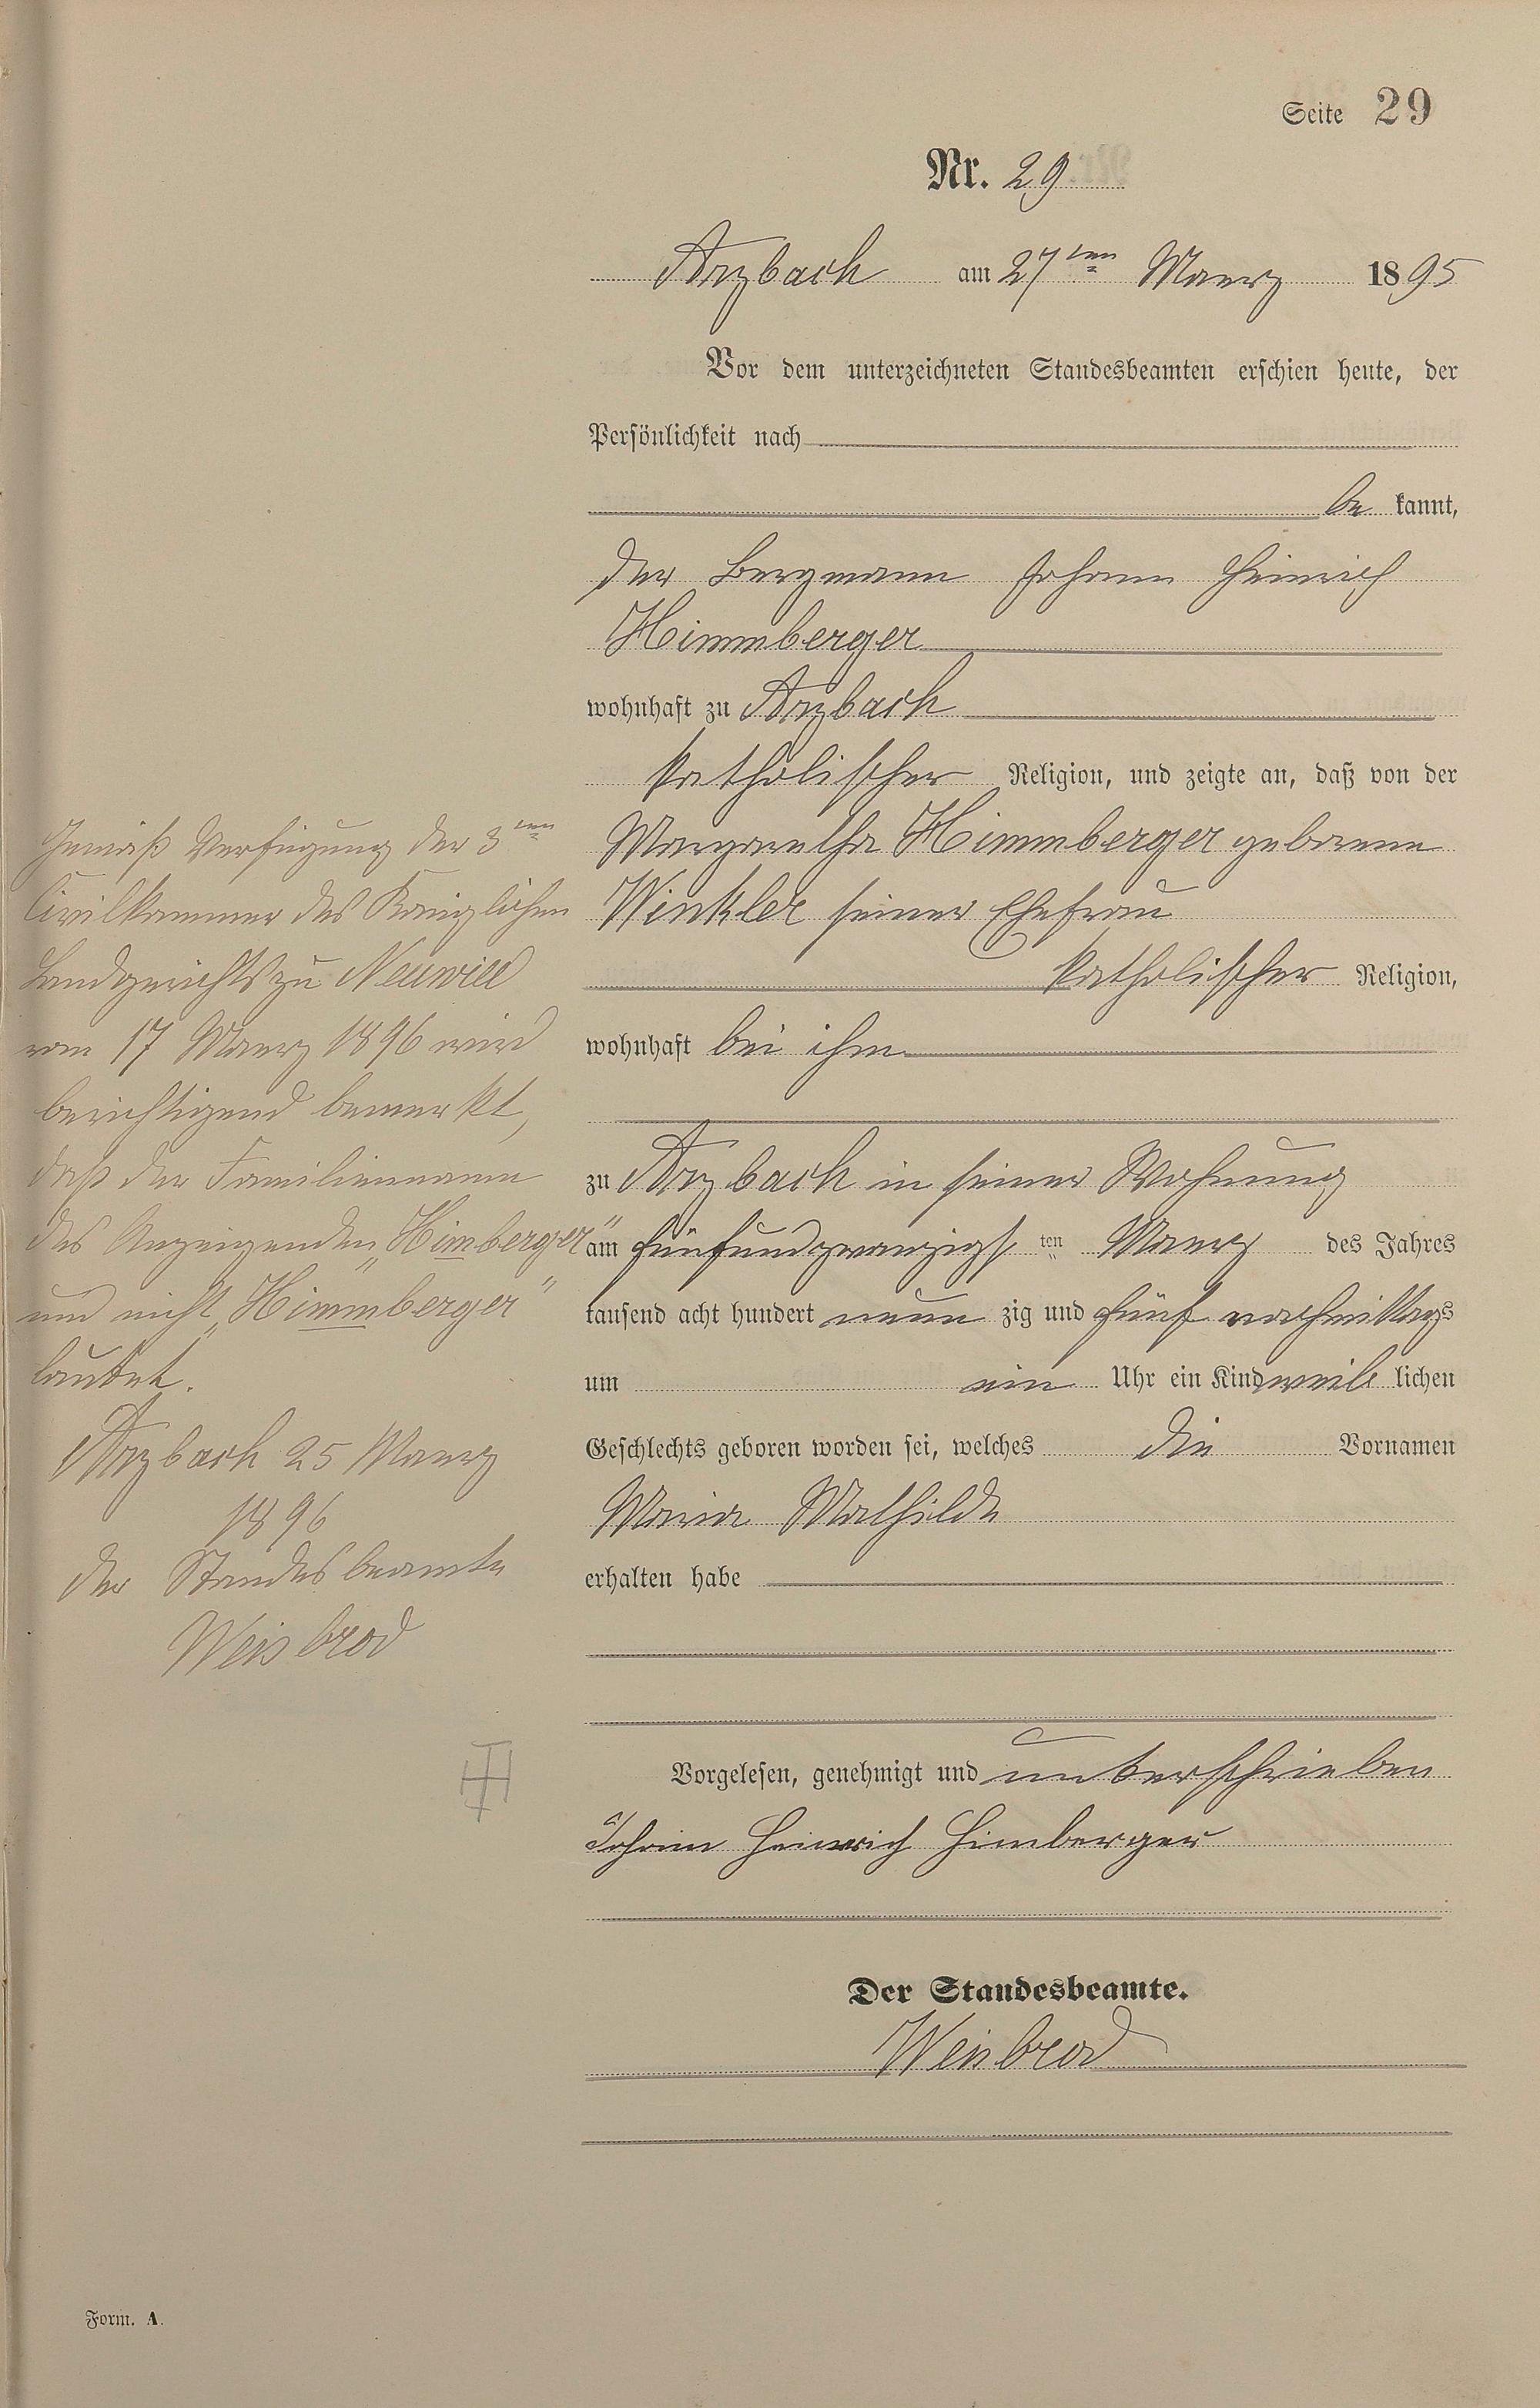 Seite 29
Nr. 29
Arzbach am 27ten Maerz 1895
Vor dem unterzeichneten Standesbeamten erschien heute, der
Persönlichkeit nach
be kannt,
der Bergmann Johann Heinrich
Himmberger
wohnhaft zu Arzbach
katholischer Religion, und zeigte an, daß von der
Margaretha Himmberger geborene
Winkler seiner Ehefrau
katholischer Religion,
wohnhaft bei ihm
zu Arzbach in seiner Wohnung
am fünfundzwanzigsten Maerz des Jahres
tausend acht hundert neun zig und fünf nachmittags
um ein Uhr ein Kind weib lichen
Geschlechts geboren worden sei, welches die Vornamen
Maria Mathilde
erhalten habe
Vorgelesen, genehmigt und unterschrieben
Johann Heinrich Himberger
Der Standesbeamte.
Weisbrod
Gemäß Verfügung der 3ten
Civilkammer des Königlichen
Landgerichts zu Neuwied
vom 17 Maerz 1896 wird
berichtigend bemerkt,
daß der Familienname
des Anzeigenden „Himberger“
und nicht „Himmberger“
lautet.
Arzbach 25 Maerz
1896
Der Standesbeamte
Weisbrod
Form. A.